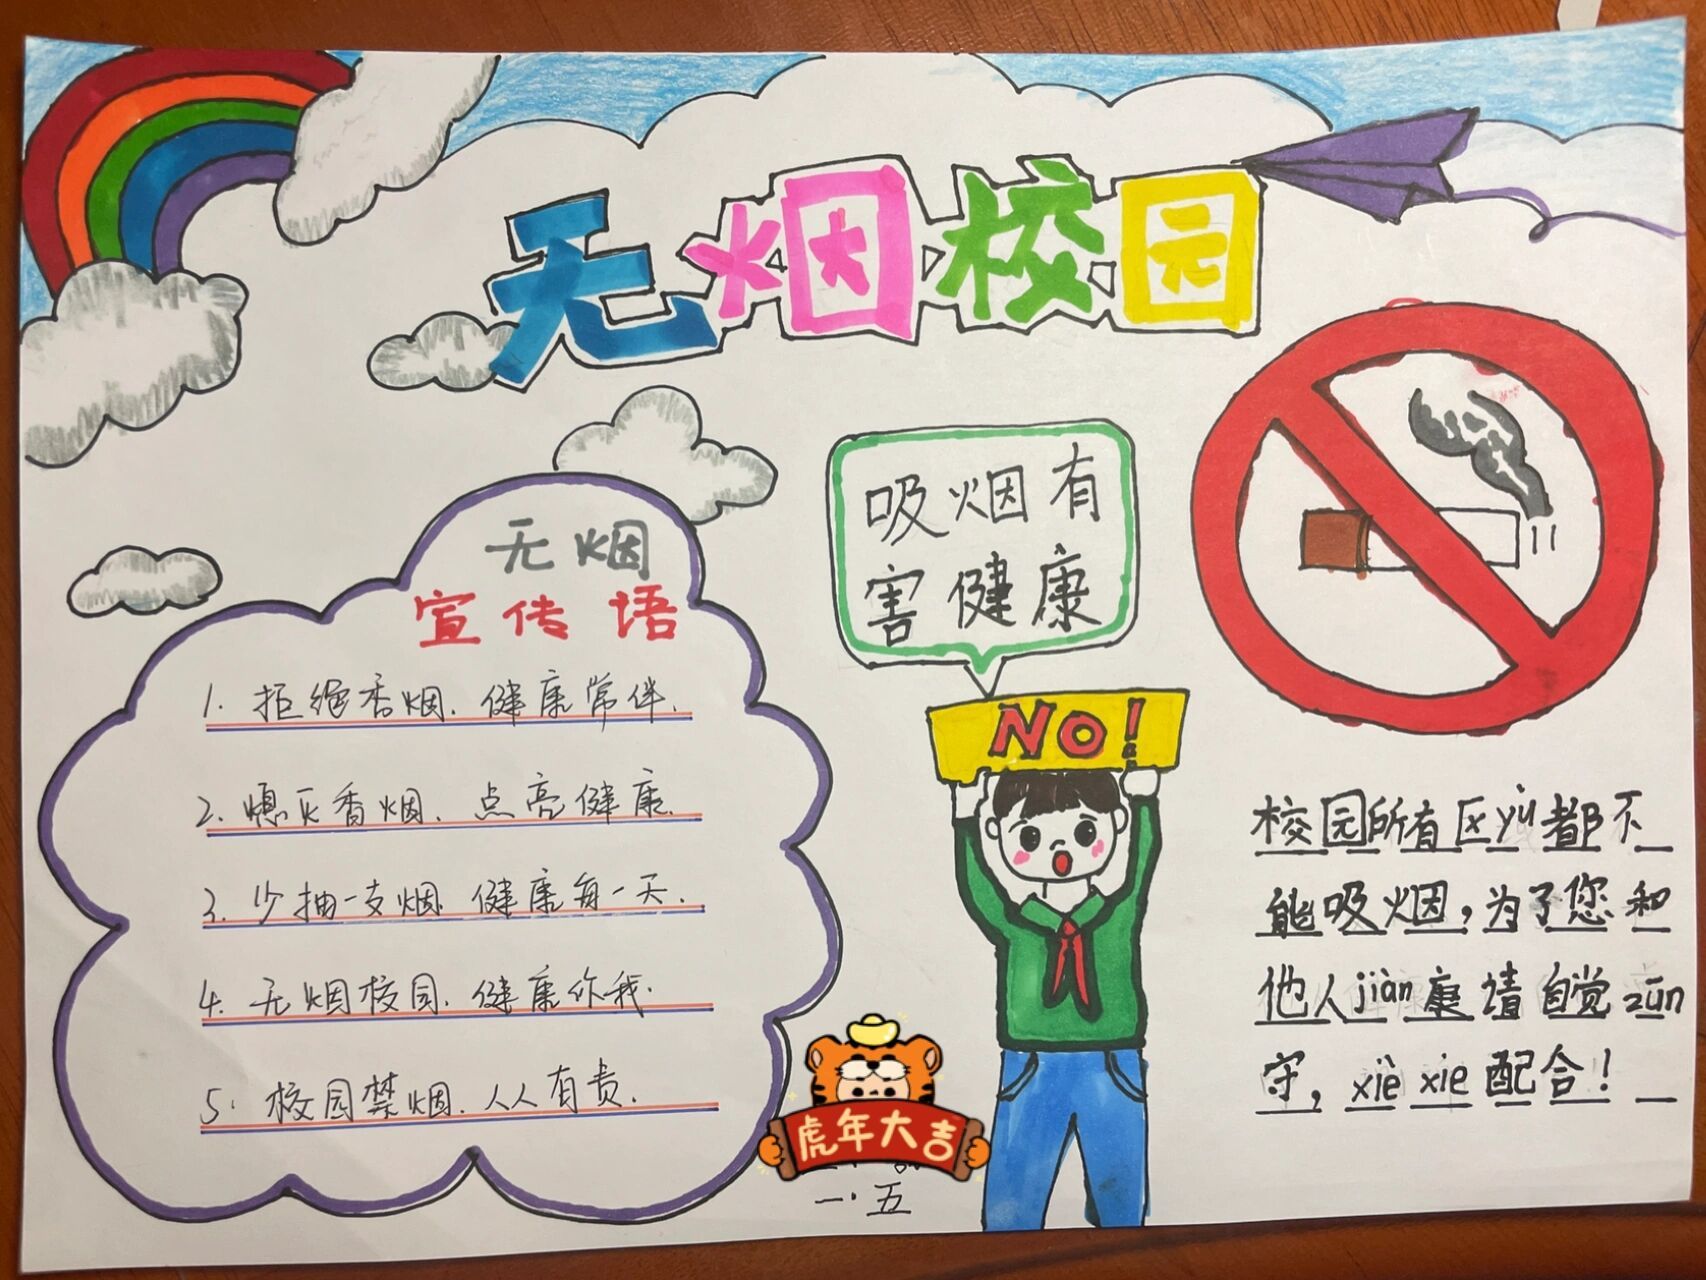 无烟校园
吸烟有
害健康
NO!
无烟
宣传语
1. 拒绝香烟.健康常伴.
2. 熄灭香烟.点亮健康.
3. 少抽一支烟.健康每一天.
4. 无烟校园.健康你我.
5. 校园禁烟.人人有责.
校园所有区yù都不
能吸烟,为了您和
他人jiàn康请自觉zūn
守,xiè xie配合!
虎年大吉
一·五